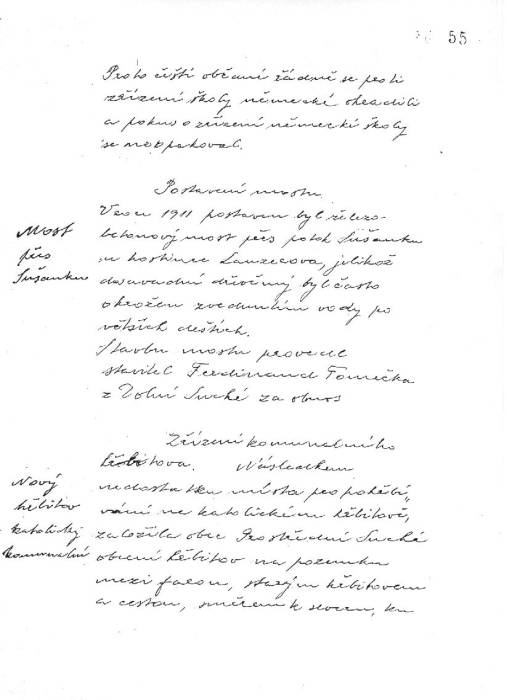 55
Proto čeští občané řádně se proti
zřízení školy německé ohradili
a pokus o zřízení německé školy
se neopakoval.
Postavení mostu
V roce 1911 postaven byl železo-
betonový most přes potok Sušanku
u hostince Lanzecova, jelikož
dosavadní dřevěný byl často
ohrožen zvednutím vody po
větších deštích.
Stavbu mostu provedl
stavitel Ferdinand Tomečka
z Dolní Suché za obnos
Most
přes
Sušanku
Zřízení komunálního
hřbitova. Následkem
nedostatku místa pro pohřbí-
vání na katolickém hřbitově,
založila obec Prostřední Suché
obecní hřbitov na pozemku
mezi farou, starým hřbitovem
a cestou, směrem k severu, ku
Nový
hřbitov
katolický
komunální